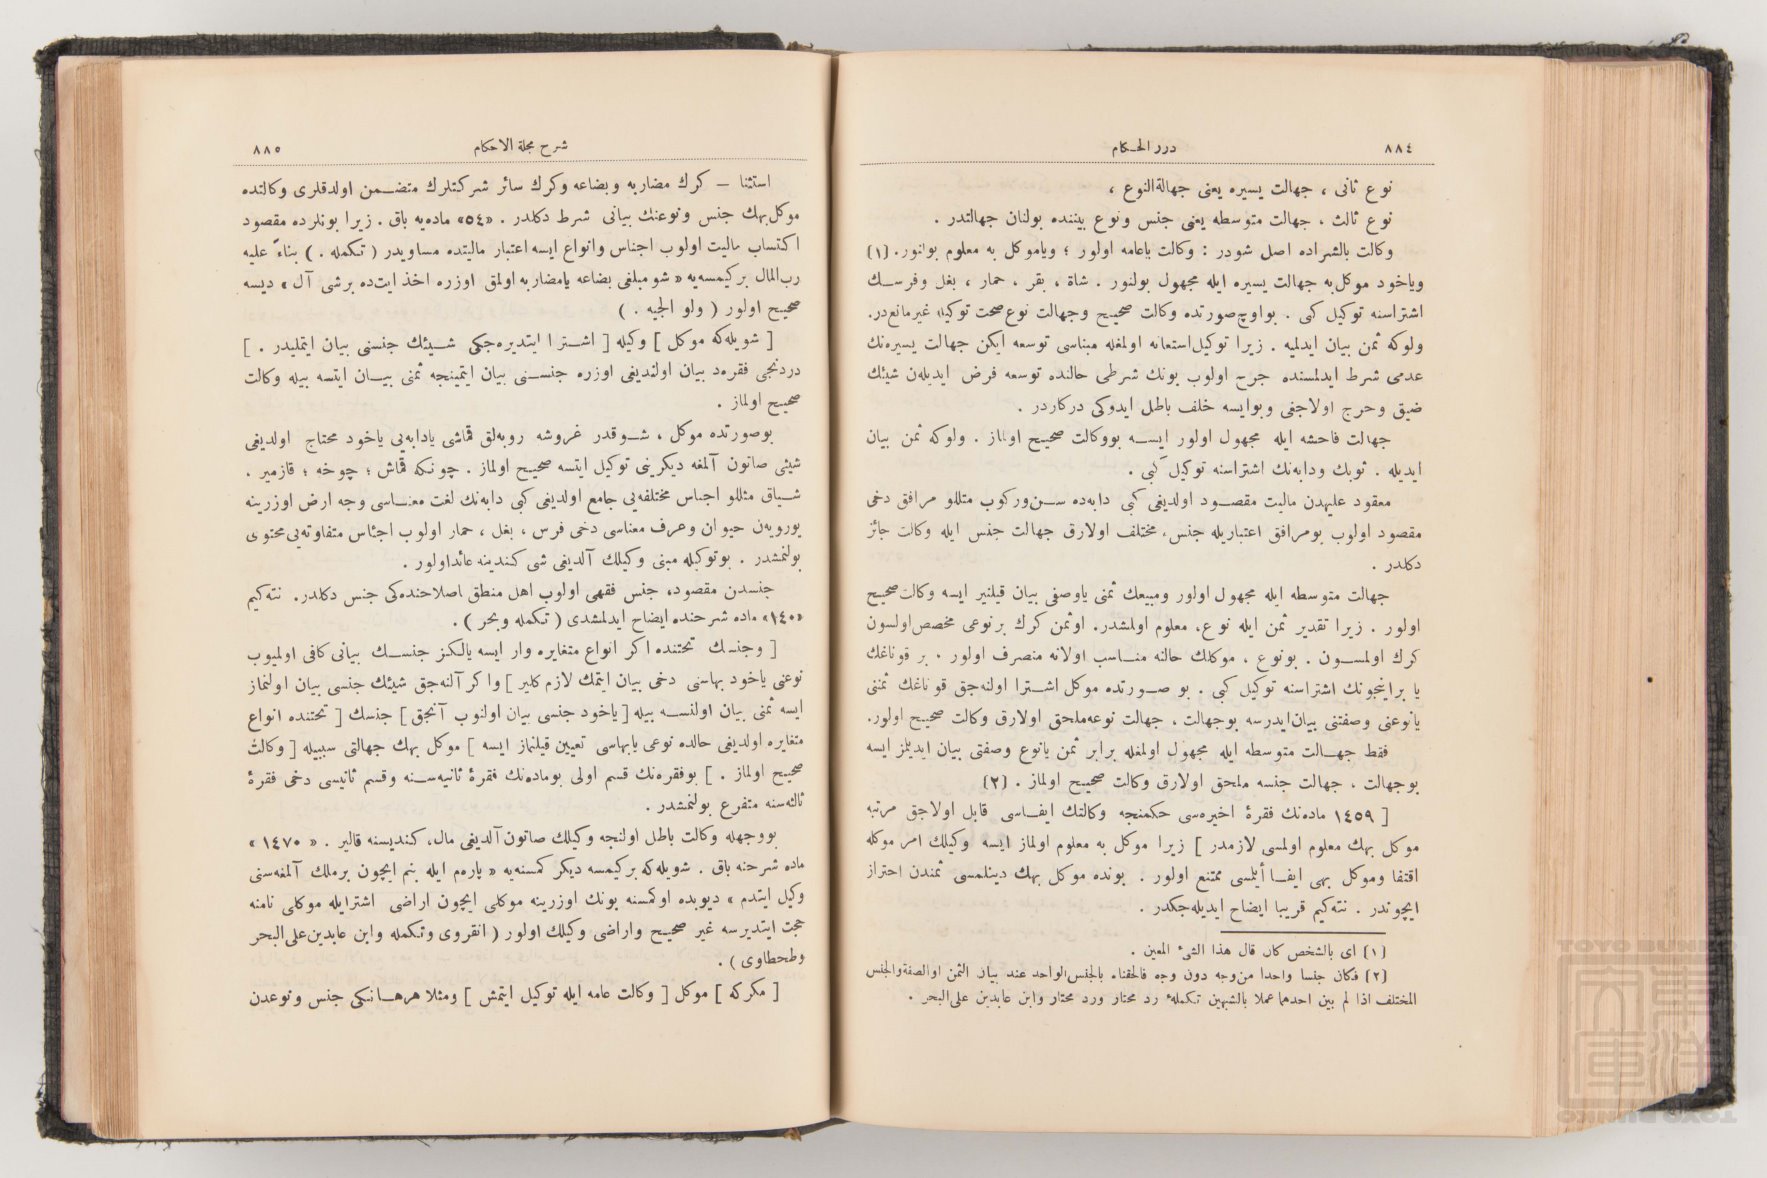 ٨٨٤
درر الحكام
نوع ثانى ، جهالت يسيره يعنى جهالةالنوع ،
نوع ثالث ، جهالت متوسطه يعنى جنس ونوع بيننده بولنان جهالتدر .
وكالت بالشراده اصل شودر : وكالت ياعامه اولور ؛ وياموكل به معلوم بولنور. (١)
وياخود موكل‌به جهالت يسيره ايله مجهول بولنور . شاة ، بقر ، حمار ، بغل وفرسك
اشتراسنه توكيل كبى . بواوچ‌صورتده وكالت صحيح وجهالت نوع صحت توكيله غيرمانع‌در.
ولوكه ثمن بيان ايدلميه . زيرا توكيل‌استعانه اولمغله مبناسى توسعه ايكن جهالت يسيره‌نك
عدمى شرط ايدلمسنده جرح اولوب بونك شرطى حالنده توسعه فرض ايديلان شيئك
ضيق وحرج اولاجغى وبوايسه خلف باطل ايدوكى دركاردر .
جهالت فاحشه ايله مجهول اولور ايسه بووكالت صحيح اولماز . ولوكه ثمن بيان
ايديله . ثوبك ودابه‌نك اشتراسنه توكيل كبى .
معقود عليهدن ماليت مقصود اولديغى كبى دابه‌ده سمن‌وركوب مثللو مرافق دخى
مقصود اولوب بومرافق اعتباريله جنس، مختلف اولارق جهالت جنس ايله وكالت جائز
دكلدر .
جهالت متوسطه ايله مجهول اولور ومبيعك ثمنى ياوصفى بيان قيلنير ايسه وكالت‌صحيح
اولور . زيرا تقدير ثمن ايله نوع، معلوم اولمشدر. اوثمن كرك برنوعى مخصص‌اولسون
كرك اولمسون . بونوع ، موكلك حالنه مناسب اولانه منصرف اولور . بر قوناغك
يا براينجونك اشتراسنه توكيل كبى . بو صورتده موكل اشترا اولنه‌جق قوناغك ثمننى
يانوعنى وصفتنى بيان‌ايدرسه بوجهالت ، جهالت نوعه‌ملحق اولارق وكالت صحيح اولور.
فقط جهالت متوسطه ايله مجهول اولمغله برابر ثمن يانوع وصفتى بيان ايديلمز ايسه
بوجهالت ، جهالت جنسه ملحق اولارق وكالت صحيح اولماز . (٢)
[ ١٤٥٩ ماده‌نك فقرۀ اخيره‌سى حكمنجه وكالتك ايفاسى قابل اولاجق مرتبه
موكل بهك معلوم اولمسى لازمدر ] زيرا موكل به معلوم اولماز ايسه وكيلك امر موكله
اقتفا وموكل بهى ايفا أيلمسى ممتنع اولور . بونده موكل بهك دينلمسى ثمندن احتراز
ايچوندر . نته‌كيم قريبا ايضاح ايديله‌جكدر .
(١) اى بالشخص كان قال هذا الشئ المعين .
(٢) فكان جنسا واحدا من‌وجه دون وجه فالحقناه بالجنس‌الواحد عند بيان الثمن اوالصفةوالجنس
المختلف اذا لم يبين احدهما عملا بالشبهين تكمله‌ء رد محتار ورد محتار وابن عابدين على‌البحر .
شرح مجلة الاحكام
٨٨٥
استثنا — كرك مضاربه وبضاعه وكرك سائر شركتلرك متضمن اولدقلرى وكالتده
موكل‌بهك جنس ونوعنك بيانى شرط دكلدر . «٥٤» ماده‌يه باق . زيرا بونلرده مقصود
اكتساب ماليت اولوب اجناس وانواع ايسه اعتبار ماليتده مساويدر ( تكمله . ) بناءً عليه
رب‌المال بركيمسه‌يه « شو مبلغى بضاعه يامضاربه اولمق اوزره اخذ ايت‌ده برشى آل » ديسه
صحيح اولور ( ولو الجيه . )
[ شويله‌كه موكل ] وكيله [ اشترا ايتديره‌جكى شيئك جنسنى بيان ايتمليدر . ]
دردنجى فقره‌ده بيان اولنديغى اوزره جنسنى بيان ايتمينجه ثمنى بيان ايتسه بيله وكالت
صحيح اولماز .
بوصورتده موكل ، شوقدر غروشه روبه‌لق قماشى يادابه‌يى ياخود محتاج اولديغى
شيئى صاتون آلمغه ديكرينى توكيل ايتسه صحيح اولماز . چونكه قماش ؛ چوخه ؛ قازمير .
شياق مثللو اجناس مختلفه‌يى جامع اولديغى كبى دابه‌نك لغت معناسى وجه ارض اوزرينه
يورويه‌ن حيوان وعرف معناسى دخى فرس ، بغل ، حمار اولوب اجناس متفاوته‌يى محتوى
بولنمشدر . بوتوكيله مبنى وكيلك آلديغى شى كندينه عائداولور .
جنسدن مقصود، جنس فقهى اولوب اهل منطق اصلاحنده‌كى جنس دكلدر. نته‌كيم
«١٤٠» ماده شرحنده ايضاح ايدلمشدى ( تكمله وبحر ) .
[ وجنسك تحتنده اكر انواع متغايره وار ايسه يالكز جنسك بيانى كافى اولميوب
نوعنى ياخود بهاسنى دخى بيان ايتمك لازم كلير ] واكر آلنه‌جق شيئك جنسى بيان اولنماز
ايسه ثمنى بيان اولنسه بيله [ ياخود جنسى بيان اولنوب آنجق ] جنسك [ تحتنده انواع
متغايره اولديغى حالده نوعى يابهاسى تعيين قيلنماز ايسه ] موكل بهك جهالتى سببيله [ وكالت
صحيح اولماز . ] بوفقره‌نك قسم اولى بوماده‌نك فقرۀ ثانيه‌سنه وقسم ثانيسى دخى فقرۀ
ثالثه‌سنه متفرع بولنمشدر .
بووجهله وكالت باطل اولنجه وكيلك صاتون آلديغى مال، كنديسنه قالير . « ١٤٧٠ »
ماده شرحنه باق . شويله‌كه بركيمسه ديكر كمسنه‌يه « پاره‌م ايله بنم ايچون برملك آلمغه‌سنى
وكيل ايتدم » ديوبده اوكمسنه بونك اوزرينه موكلى ايچون اراضى اشترايله موكلى نامنه
حجت ايتديرسه غير صحيح واراضى وكيلك اولور ( انقروى وتكمله وابن عابدين‌على‌البحر
وطحطاوى ) .
[ مكركه ] موكل [ وكالت عامه ايله توكيل ايتمش ] ومثلا هرهانكى جنس ونوعدن
TOYO BUNKO